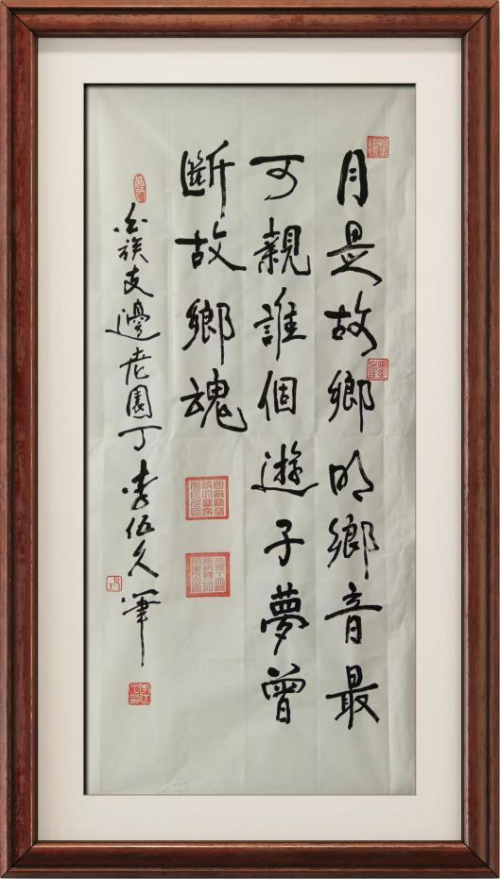 月是故鄉明鄉音最
可親誰個遊子夢曾
斷故鄉魂
白族支邊老園丁李伍久筆